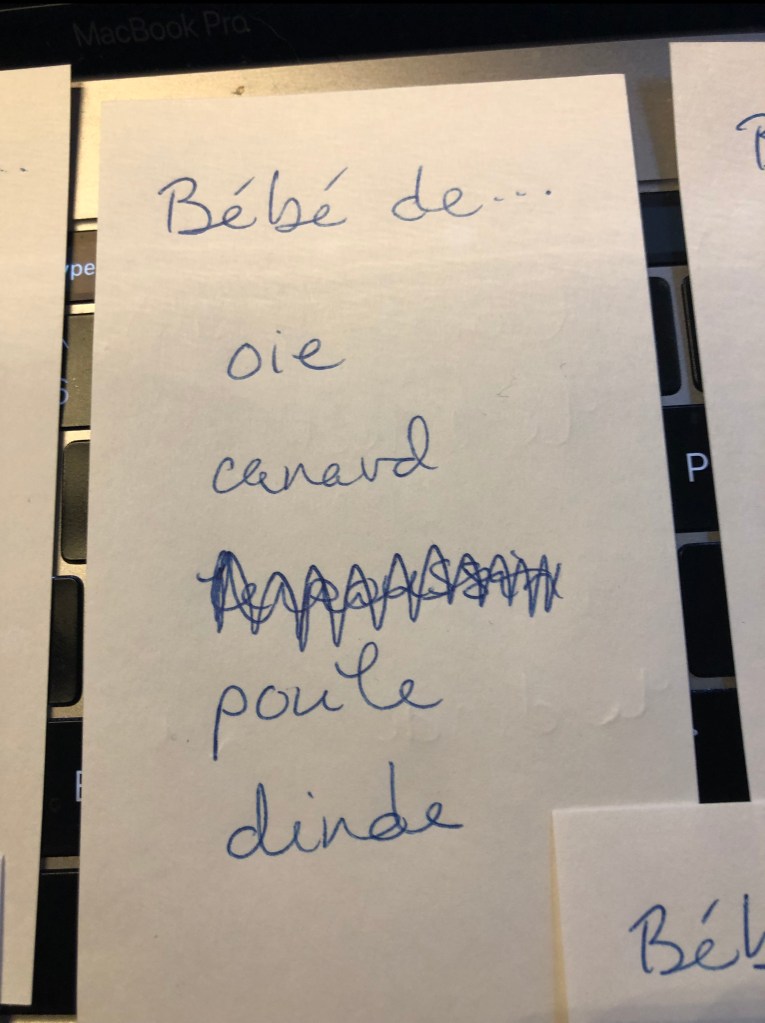 MacBook Pro
Bébé de...
oie
canard
poule
dinde
ype
P
Béb